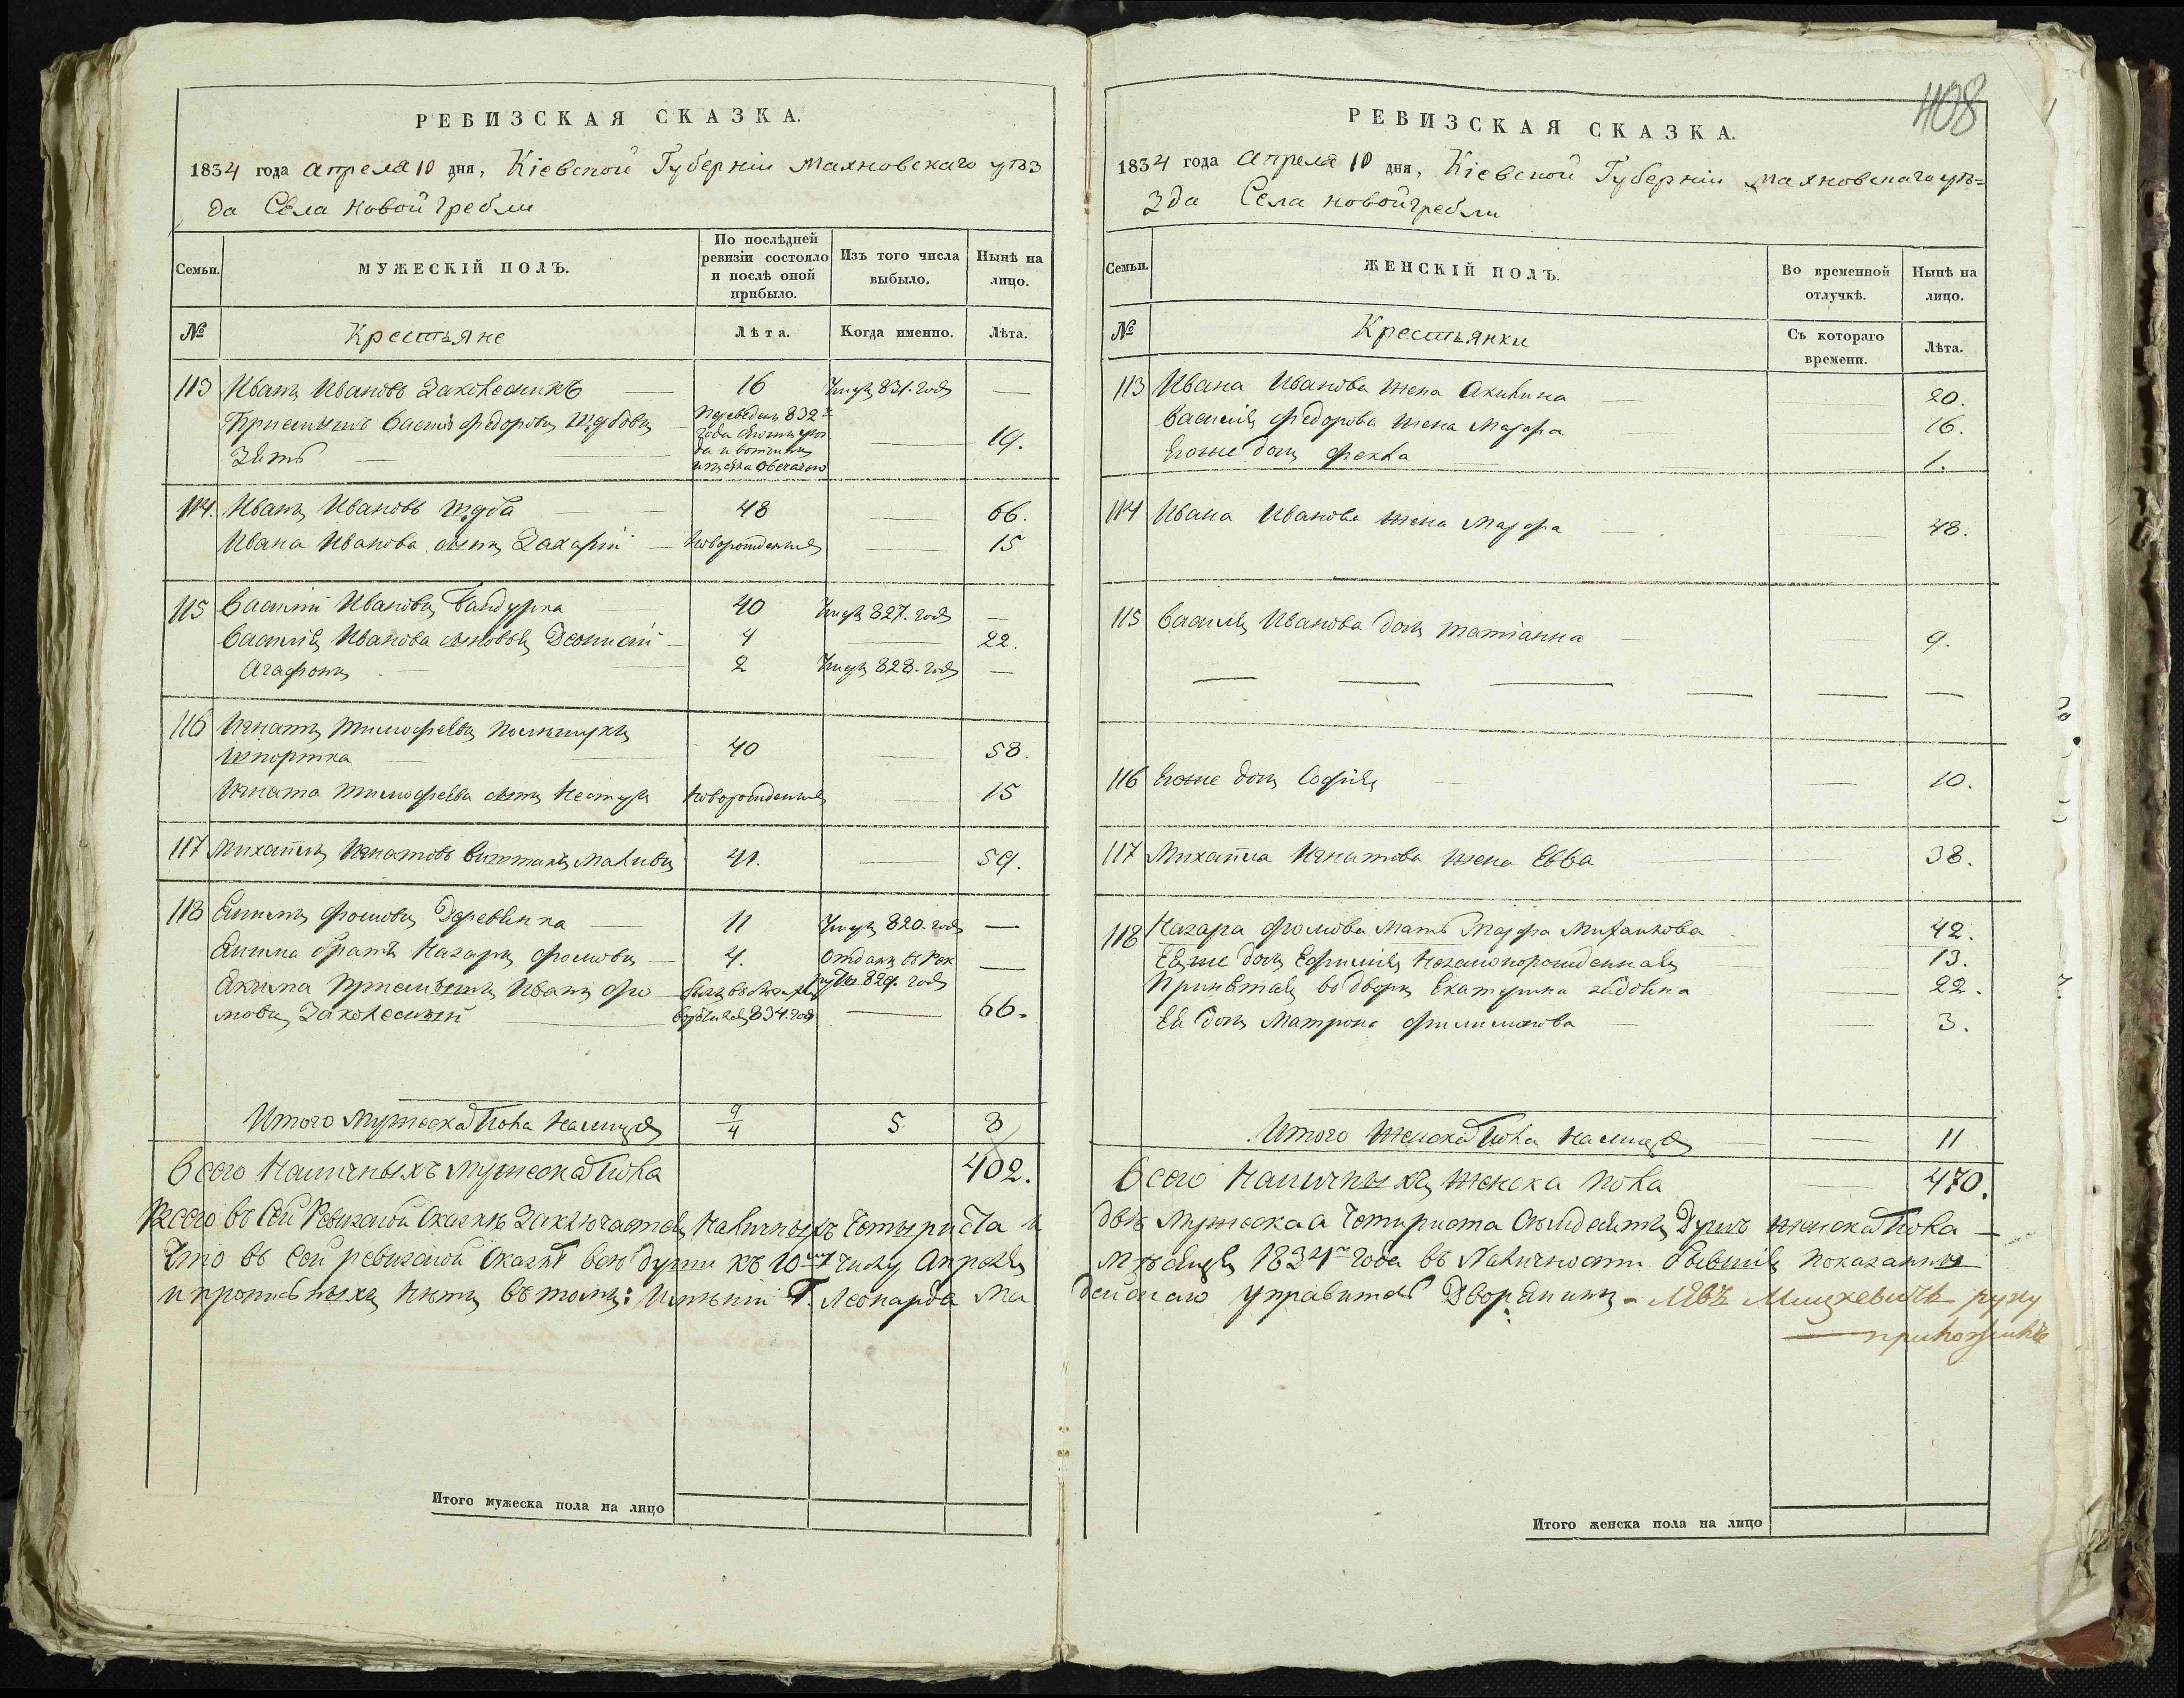 РЕВИЗСКАЯ СКАЗКА.
1834 года апреля 10 дня, Кіевской Губерніи Махновскаго уѣз
да Села Новой гребли
Семьи.
МУЖЕСКІЙ ПОЛЪ.
По послѣдней ревизіи состояло и послѣ оной прибыло.
Изъ того числа выбыло.
Нынѣ на лицо.
№
Крестьяне
Лѣта.
Когда именно.
Лѣта.
113 Иванъ Ивановъ 16 831. года —
Приемышъ Василій Федоровъ Переведенъ 832
года
Зять 19.
да и вотчины
114. Иванъ Ивановъ 48 66.
Ивана Иванова сынъ Захарій Новорожденный 15
115 Василій Ивановъ Бандурка 40 827. года —
Василія Иванова сыновья Деонисій 4 22.
Агафонъ 2 828. года —
116 Игнатъ Тимофеевъ Полищукъ
40 58.
Игната Тимофеева сынъ Несторъ Новорожденный 15
117 Михаилъ Игнатовъ 41. 59.
118 Якимъ Фомовъ Деревянка 11 820. года —
Якима братъ Назаръ Фомовъ 4. Отданъ въ рек
829. года —
Акима Приемышъ Иванъ Фо
мовъ 834. года 66.
Итого Мужеска Пола Налицо 9/4 5 3
Всего Наличныхъ мужеска Пола 402.
Всего въ Сей Ревизской Сказкѣ Заключается Наличныхъ Четыриста и
Что въ Сей ревизской Сказкѣ всѣ души къ 10му числу Апреля
и прописныхъ нѣтъ въ томъ: Имѣній Г. Леонарда Ма
Итого мужеска пола на лицо
408
РЕВИЗСКАЯ СКАЗКА.
1834 года апреля 10 дня, Кіевской Губерніи Махновскаго уѣ=
зда Села Новой гребли
Семьи.
ЖЕНСКІЙ ПОЛЪ.
Во временной отлучкѣ.
Нынѣ на лицо.
№
Крестьянки
Съ котораго времени.
Лѣта.
113 Ивана Иванова жена Акилина 20.
Василія Федорова жена Марфа 16.
Егоже дочь Фекла 1.
114 Ивана Иванова жена Марфа 48.
115 Василія Иванова дочь Татіанна 9.
116 Егоже дочь Софія 10.
117 Михайла Игнатова жена Евва 38.
118 Назара Фомова Мать Марфа Михайлова 42.
Еяже дочь Ефимія Незаконорожденная 13.
Принятая во дворъ Екатерина вдовина 22.
Ея дочь Матрона Филимонова 3.
Итого Женска Пола Налицо 11
Всего Наличныхъ женска пола 470.
двѣ Мужеска а Четыриста Семдесятъ Душъ женска Пола —
Мѣсяца 1834го года въ Наличности бывшія показанны
Управитель Дворянинъ - Мицкевичъ руку
приложилъ
Итого женска пола на лицо